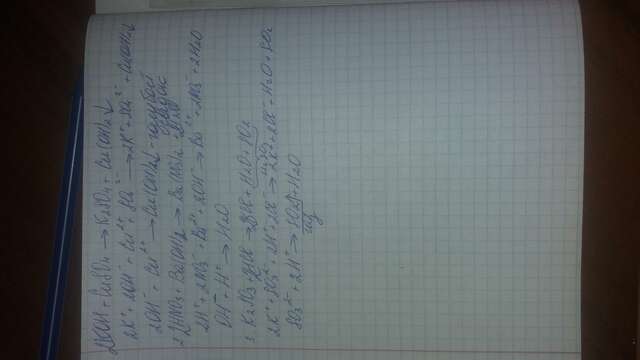 2KOH + CuSO4 → K2SO4 + Cu(OH)2↓
2K⁺ + 2OH⁻ + Cu²⁺ + SO4²⁻ → 2K⁺ + SO4²⁻ + Cu(OH)2↓
2OH⁻ + Cu²⁺ → Cu(OH)2↓ - голубой осадок
2) 2HNO3 + Ba(OH)2 → Ba(NO3)2 + 2H2O
2H⁺ + 2NO3⁻ + Ba²⁺ + 2OH⁻ → Ba²⁺ + 2NO3⁻ + 2H2O
OH⁻ + H⁺ → H2O
3 K2SO3 + 2HCl → 2KCl + H2O + SO2
2K⁺ + SO3²⁻ + 2H⁺ + 2Cl⁻ → 2K⁺ + 2Cl⁻ + H2O + SO2
SO3²⁻ + 2H⁺ → SO2↑ + H2O
газ